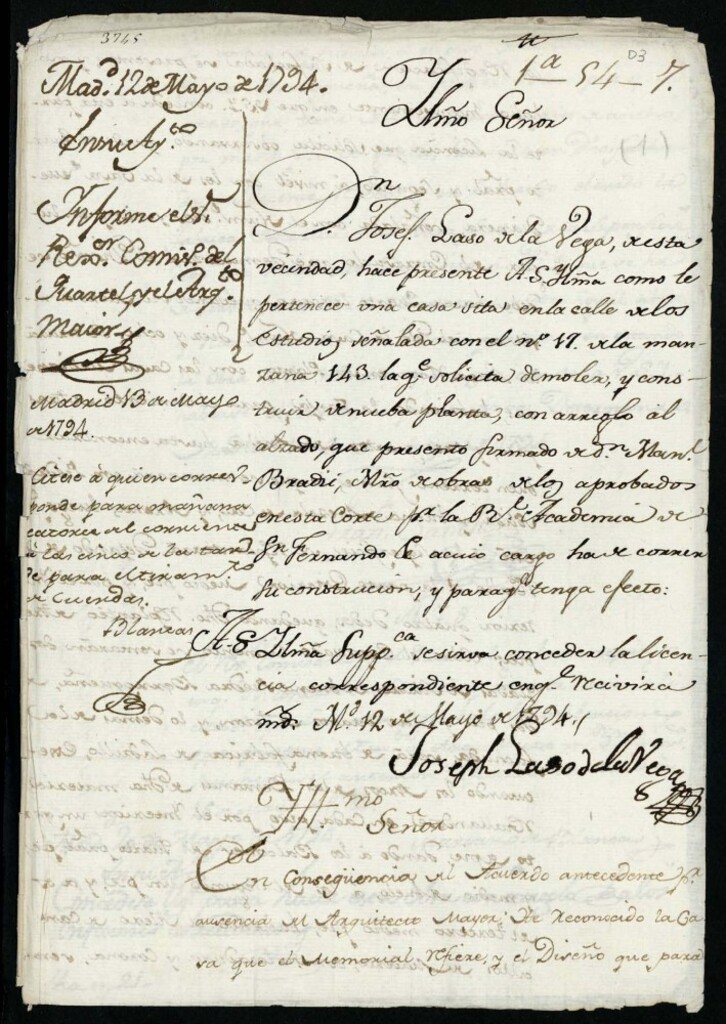 3745
1ª 54 D3 7.
Madᵈ 12 de Mayo de 1794.
En su Ayᵗᵒ
Informe el Sʳ
Rexᵒʳ Comisº del
Quartel y el Arqᵗᵒ
Maior
Madrid 13 de Mayo
de 1794.
Citese à quien corres-
ponde para mañana
catorce del corriente
à las cinco de la tar-
de para el tiramᵗᵒ
de Cuerdas.
Blancas
Yllmo Señor
Dⁿ Josef Laso de la Vega, de esta
vecindad, hace presente A S Yllma como le
pertenece una casa sita en la calle de los
estudios señalada con el nº 17. de la man-
zana 143 la qᵉ solicita demoler, y cons-
truir de nueba planta, con arreglo al
alzado, que presento firmado de dⁿ Manˡ
Bradi, Mro de obras de los aprobados
en esta Corte pʳ la Rˡ Academia de
Sⁿ Fernando de acuio cargo ha de correr
su construcion, y para qᵉ tenga efecto:
A S Yllma Suppᶜᵃ se sirva conceder la licen-
cia correspondiente en qᵉ recivirà
mrd: Mᵈ 12 de Mayo de 1794.
Joseph Laso de la Vega
Yllmo
Señor
En Conseqüencia del Acuerdo antecedente pʳ
ausencia del Arquitecto Mayor, He Reconocido la Ca-
sa que el Memorial refiere, y el Diseño que para